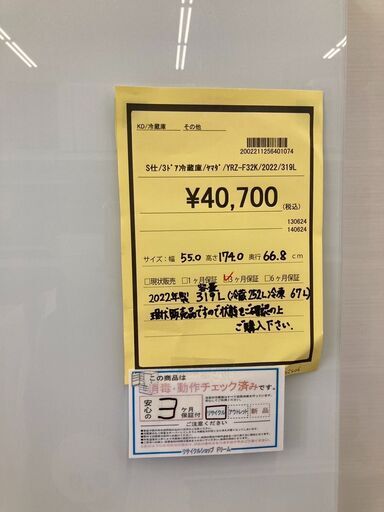 KD/冷蔵庫 その他
2002211256401074
S仕/3ﾄﾞｱ冷蔵庫/ﾔﾏﾀﾞ/YRZ-F32K/2022/319L
¥40,700(税込)
130624
140624
サイズ:幅 55.0 高さ 174.0 奥行 66.8 cm
□現状販売 □1ヶ月保証 ☑3ヶ月保証 □6ヶ月保証
容量
2022年製 319L(冷蔵252L冷凍 67L)
現状販売品ですので状態をご確認の上
ご購入下さい。
この商品は
消毒・動作チェック済みです。
安心の 3 ヶ月保証付
リサイクル アウトレット 新品
ご注意ください
リサイクルショップ ドリーム